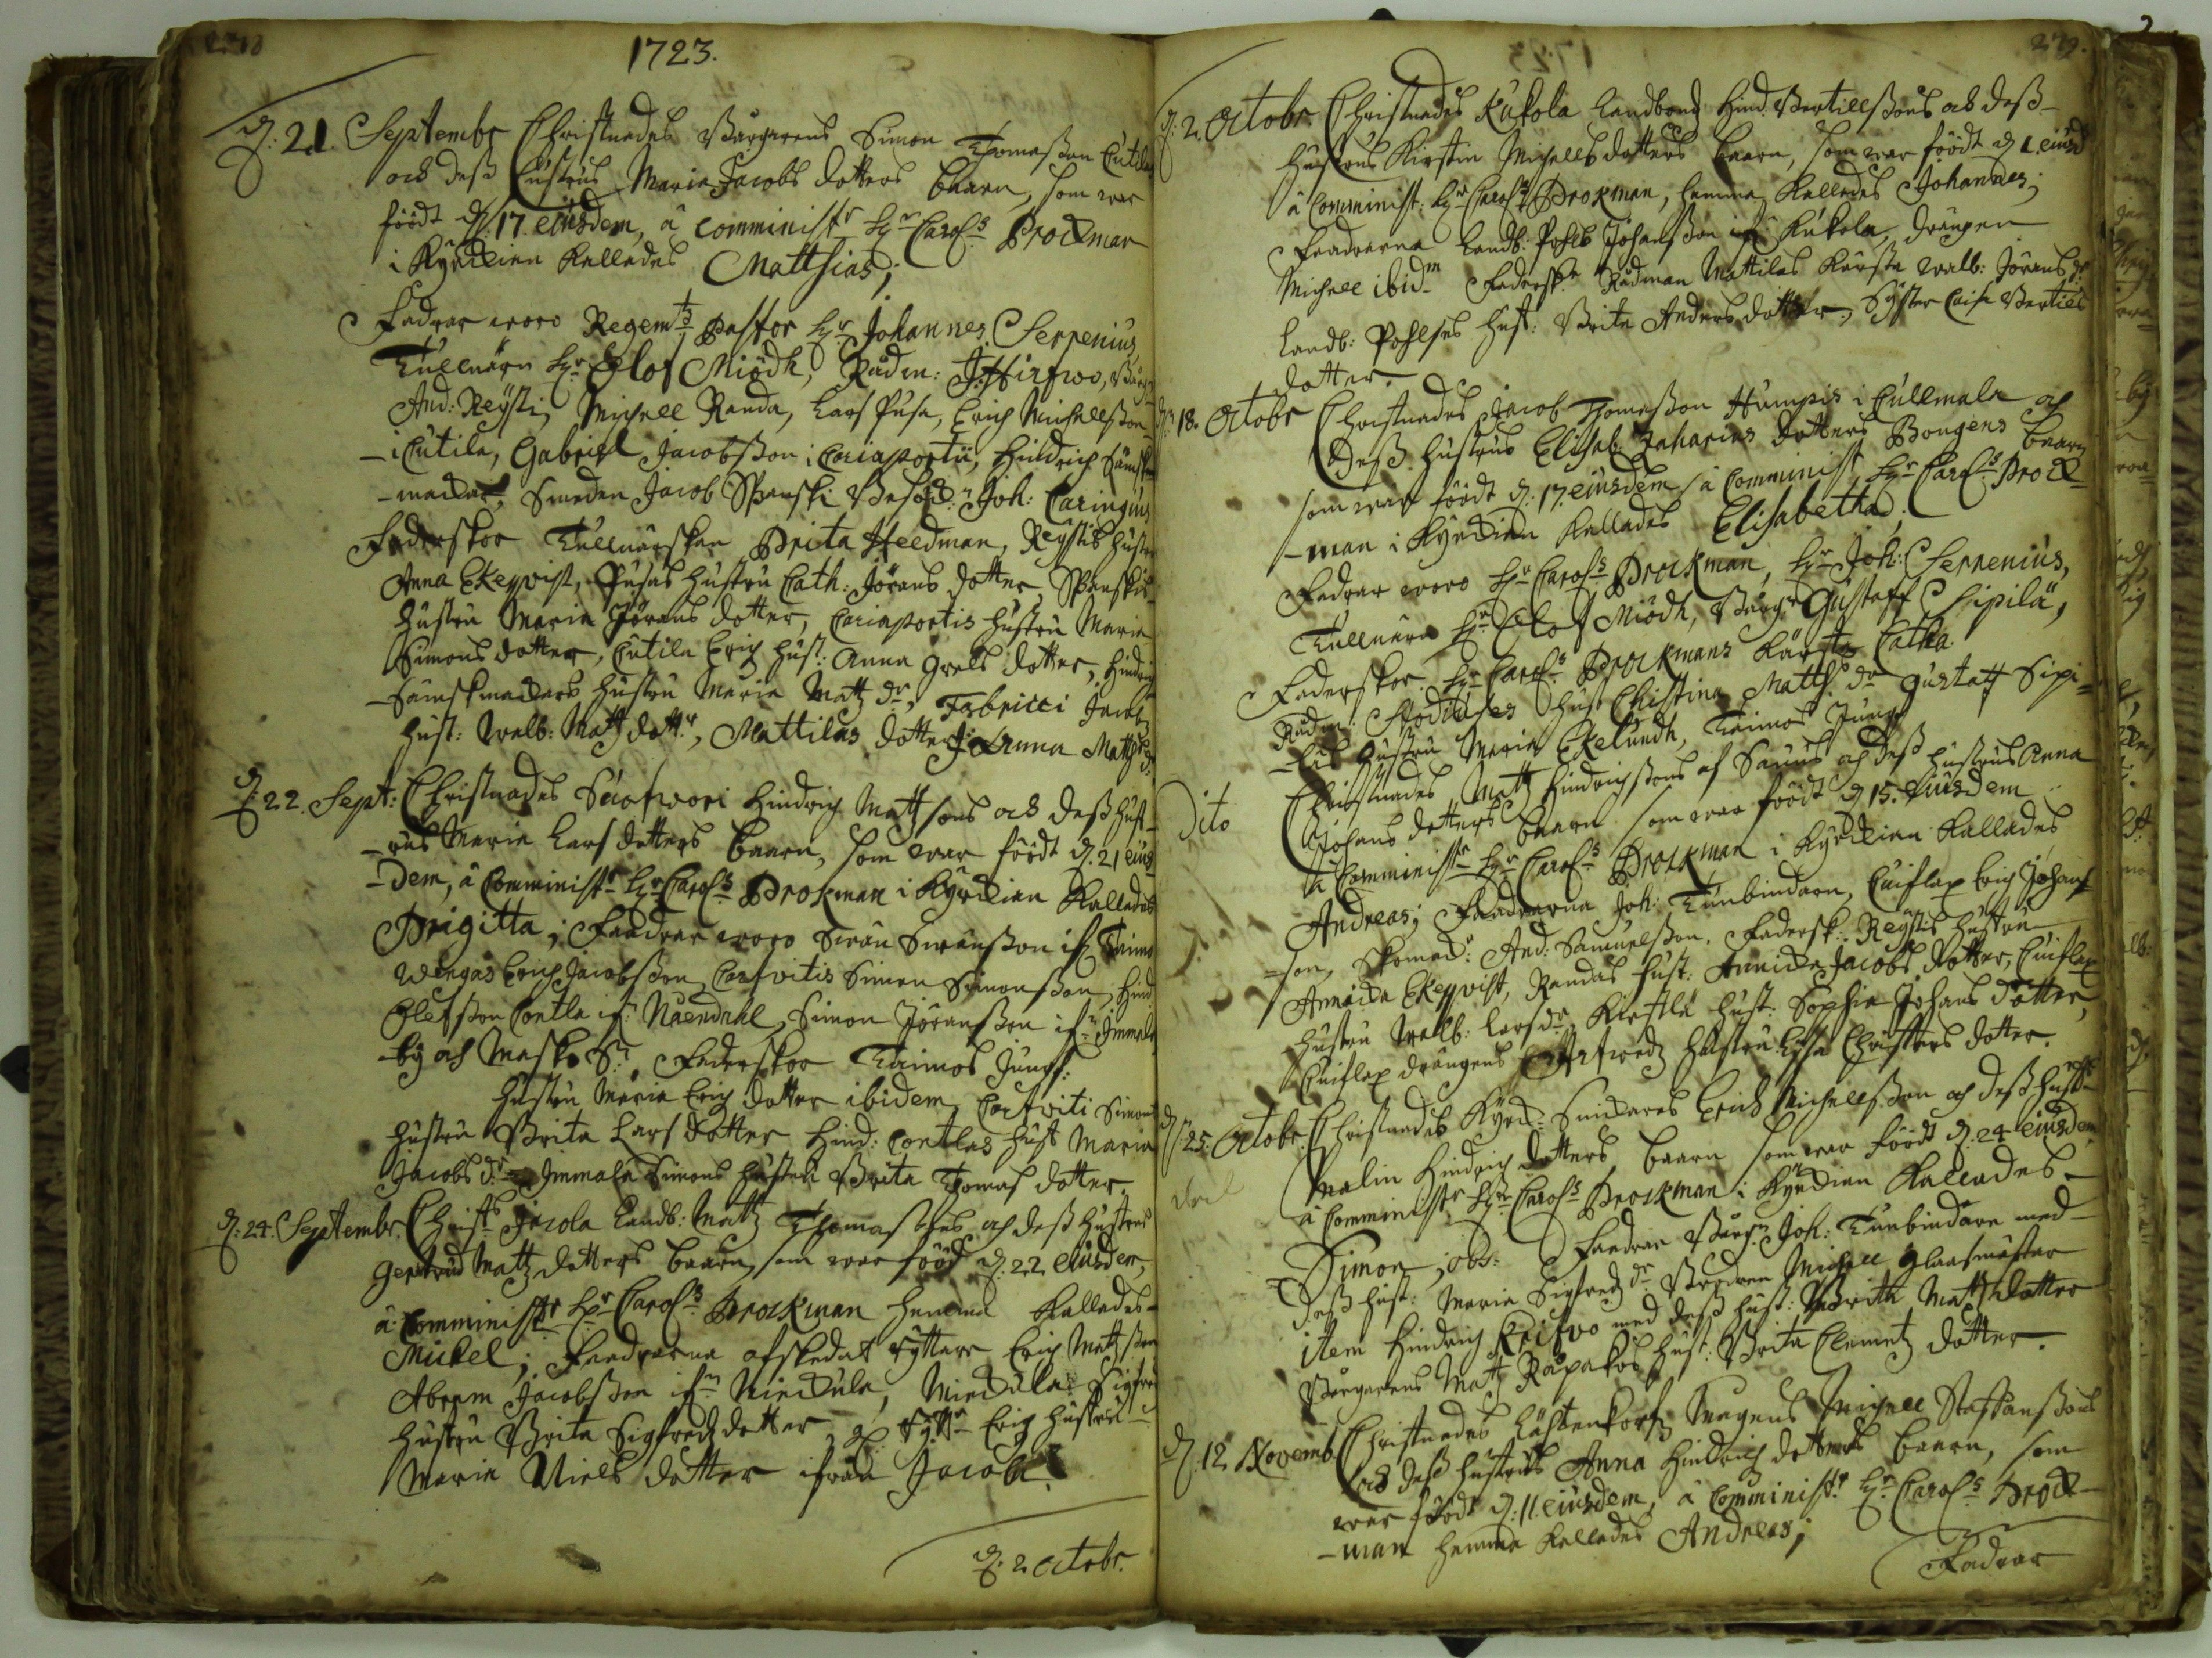 278
1723.
d. 21. Septembr Christnades Borgarens Simon Thomæßon Cutilas
och deß hustrus Maria Jacobs dotters baarn, som war
föödt d. 17 eiusdem, â Comminist:r H:r Carol:s Brockman
i Kyrckian kallades Matthias;
Fadrar woro Regem:ts Pastor H:r Johannes Serpenius,
Tullnärn H:r Elof Miödh, Rådm: J. Hirfwo,
And: Reysti, Michell Randa, Lars Pusa, Erich Michellßon
i Cutila, Gabriel Jacobsson i Cariaportti, Hindrich Sämsk-
-mackar, Smeden Jacob Spanski Joh: Caringius
Fadderskor Tullnärskan Brita Heedman, Reystis hustru
Anna Ekeqvist, Pusas hustru Cath: Jörans dotter, Spanskis
hustru Maria Jörans dotter, Cariaportis hustru Maria
Simons dotter, Cutila Erich hust: Anna Grels dotter, Hindrich
Sämskmackars hustru Maria Matz d:r, Fabricci Jacobs
hust: Walb: Matz dott:r, Mattilas dotter Anna Matz d:r
d. 22. Sept: Christnades Hindrich Mattsons och deß hust-
-rus Maria Lars dotters baarn, som war föödt d. 21 eius-
-dem, â Comminist:r H:r Carol:s Brokman i Kyrckian kallades
Brigitta; Faadrar woro Swän Swänßon if:
Erich Jacobßon, Simon Simonßon, Hind:
Olofßon Contla if: Näendahl, Simon Jöranßon if:n Immala
-by och Fadderskor Taimos Jungf:
hustru Maria Erich dotter ibidem, Simons
hustru Brita Lars dotter Hind: Contlas hust Maria
Jacobs d:r Immala Simons hustru Brita Thomas dotter
d. 24. Septembr. Christ:s Jacola Landb: Matz Thomasßons och deß hustrus
Gertrud Matz dotters baarn, som war född d. 22. eiusdem,
â Comminist:r H:r Carol:s Brockman hemma kallades
Mickel; Faadrarna afskedat ryttare Erich Mattsson
Abram Jacobßon if:n Nickula, Nickula Sigfred
hustru Brita Sigfredz dotter, Erich hustru
Maria Niels dotter ifrån Jacola
d. 2 Octobr.
279.
d. 2. Octobr. Christnades Kukola Landbond Hind. Bertillßons och deß
hustrus Kirstin Michells dotters baarn, som war föödt d 1. eiusd
â Comminist: H:r Carol:s Brokman, hemma kallades Johannes;
Faadrarna Landb. Pohls Johanßon if: Kukola, drängen
Michell ibid:m Faddersk:r Rådman Mattilas kärsta Walb: Jörans d:r
Landb: Pohlses hust: Brita Anders dotter, Syster Caisa Bertils
dotter.
d. 18. Octobr Christnades Jacob Thomæßon Humpis i Cullmala och
deß hustrus Elisab: Zacharias dotters Bongens baarn
som war föödt d. 17. eiusdem, â Comminist H:r Carol:s Brock
-man i Kyrckian kallades Elisabetha.
Fadrar woro H:r Carol:s Brockman, H:r Joh: Serpenius,
Tullnärn H:r Elof Miödh, Borg:r Gustaff Sipilä,
Faderskor H:r Carol:s Brockmans kärsta Catha
Rådm: Stodiuses hust Christina Matth: d:r Gustaff Sipi=
-läs hustru Maria Ekelundh, Taimos Jungf
Dito Christnades Matz Hindrichßons af Saaris och deß hustrus Anna
Johans dotters baarn som war föödt d 15. Eiusdem
â Comminist:r H:r Carol:s Brockman i Kyrckian kallades
Andreas; Faadrarna Joh: Tunbindarn, Cuiflax Erich Johans
=son, Skomack:r And: Samuelßon. Faddersk: Reystis hustru
Annicka Ekeqvist, Randas hust: Annicka Jacobs dotter, Cuiflax
hustru Walb: Lars d:r Kiestlä hust: Sophia Johans dotter,
Cuiflax drängens hustru Lisa Christers dotter.
d. 25. Octobr. Christnades Erich Michellßon och deß hustrus
Malin Hindrich dotters baarn som war föödt d. 24 eiusdem
â Comminist:r H:r Carol:s Brockman i Kyrckian kallades
Simon, obs: Faadrar Borg:n Joh: Tunbindare med
deß hust: Maria Sigfredz d:r Michell Glaasmästar
item Hindrich Keifwo med deß hust: Brita Matz dotter
Borgarens Matz Räpäkös hust: Brita Clemetz dotter.
d. 12. Novemb. Christnades Michell Staffanßons
och deß hustrus Anna Hindrich dotters baarn, som
war föödt d. 11. eiusdem, â Comminist:r H:r Carol:s Brock
-man hemma kallades Andreas;
Fadrar